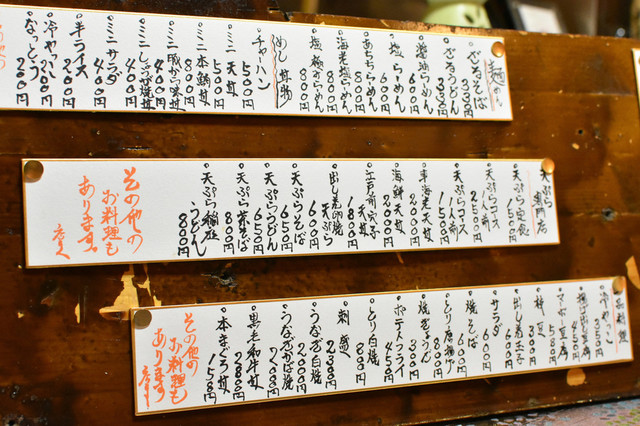 麺るい
ざるそば
ざるうどん
醤油らーめん
塩らーめん
あちちらーめん 800円
海老塩らーめん 800円
塩極みらーめん 800円
めし 丼物
チャーハン 500円
ミニ天丼 500円
ミニ本鮪丼
ミニ豚から味丼 400円
ミニしょうが焼丼 400円
ミニサラダ 400円
半ライス 200円
冷やっこ 200円
なっとう 200円
天ぷら専門店
天ぷら定食 1500円
天ぷらコース 一人前 2500円
天ぷらコース 一人前 1500円
車海老天丼 2000円
海鮮天丼 2000円
江戸前穴子天丼 1800円
出し巻卵焼天ぷら 600円
天ぷらそば 650円
天ぷらうどん 650円
天ぷら茶そば 800円
天ぷら稲庭うどん 800円
その他の
お料理も
あります。
冷やっこ
揚げ出し豆腐
マーボ豆腐 580円
枝豆 300円
出し巻玉子 600円
サラダ 600円
焼そば 600円
とり唐揚げ 800円
焼きうどん
ポテトフライ 450円
とり白焼 800円
刺盛 2300円
うなぎ白焼 2000円
うなぎかば焼 2000円
黒毛和牛丼 2800円
本まぐろ丼 1580円
その他の
お料理も
あります